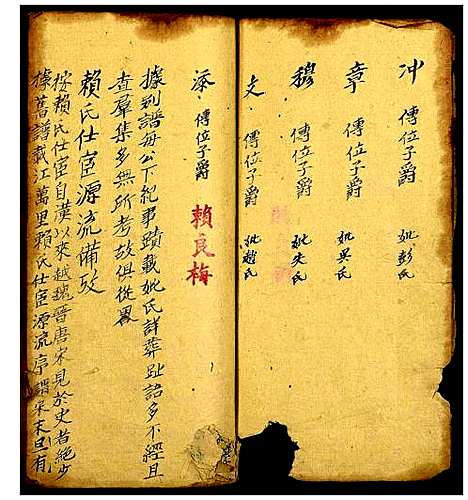 冲 傳位子爵 妣彭氏
章 傳位子爵 妣吳氏
穆 傳位子爵 妣朱氏
文 傳位子爵 妣趙氏
添 傳位子爵 賴良梅
據别譜每公下紀事蹟載妣氏詳葬趾語多不經且
查羣集多無所考故俱從畧
賴氏仕宦源流備攷
按賴氏仕宦自漢以來越魏晉唐宋見於史者絕少
據舊譜載江萬里賴氏仕宦源流序譜宋末旦有